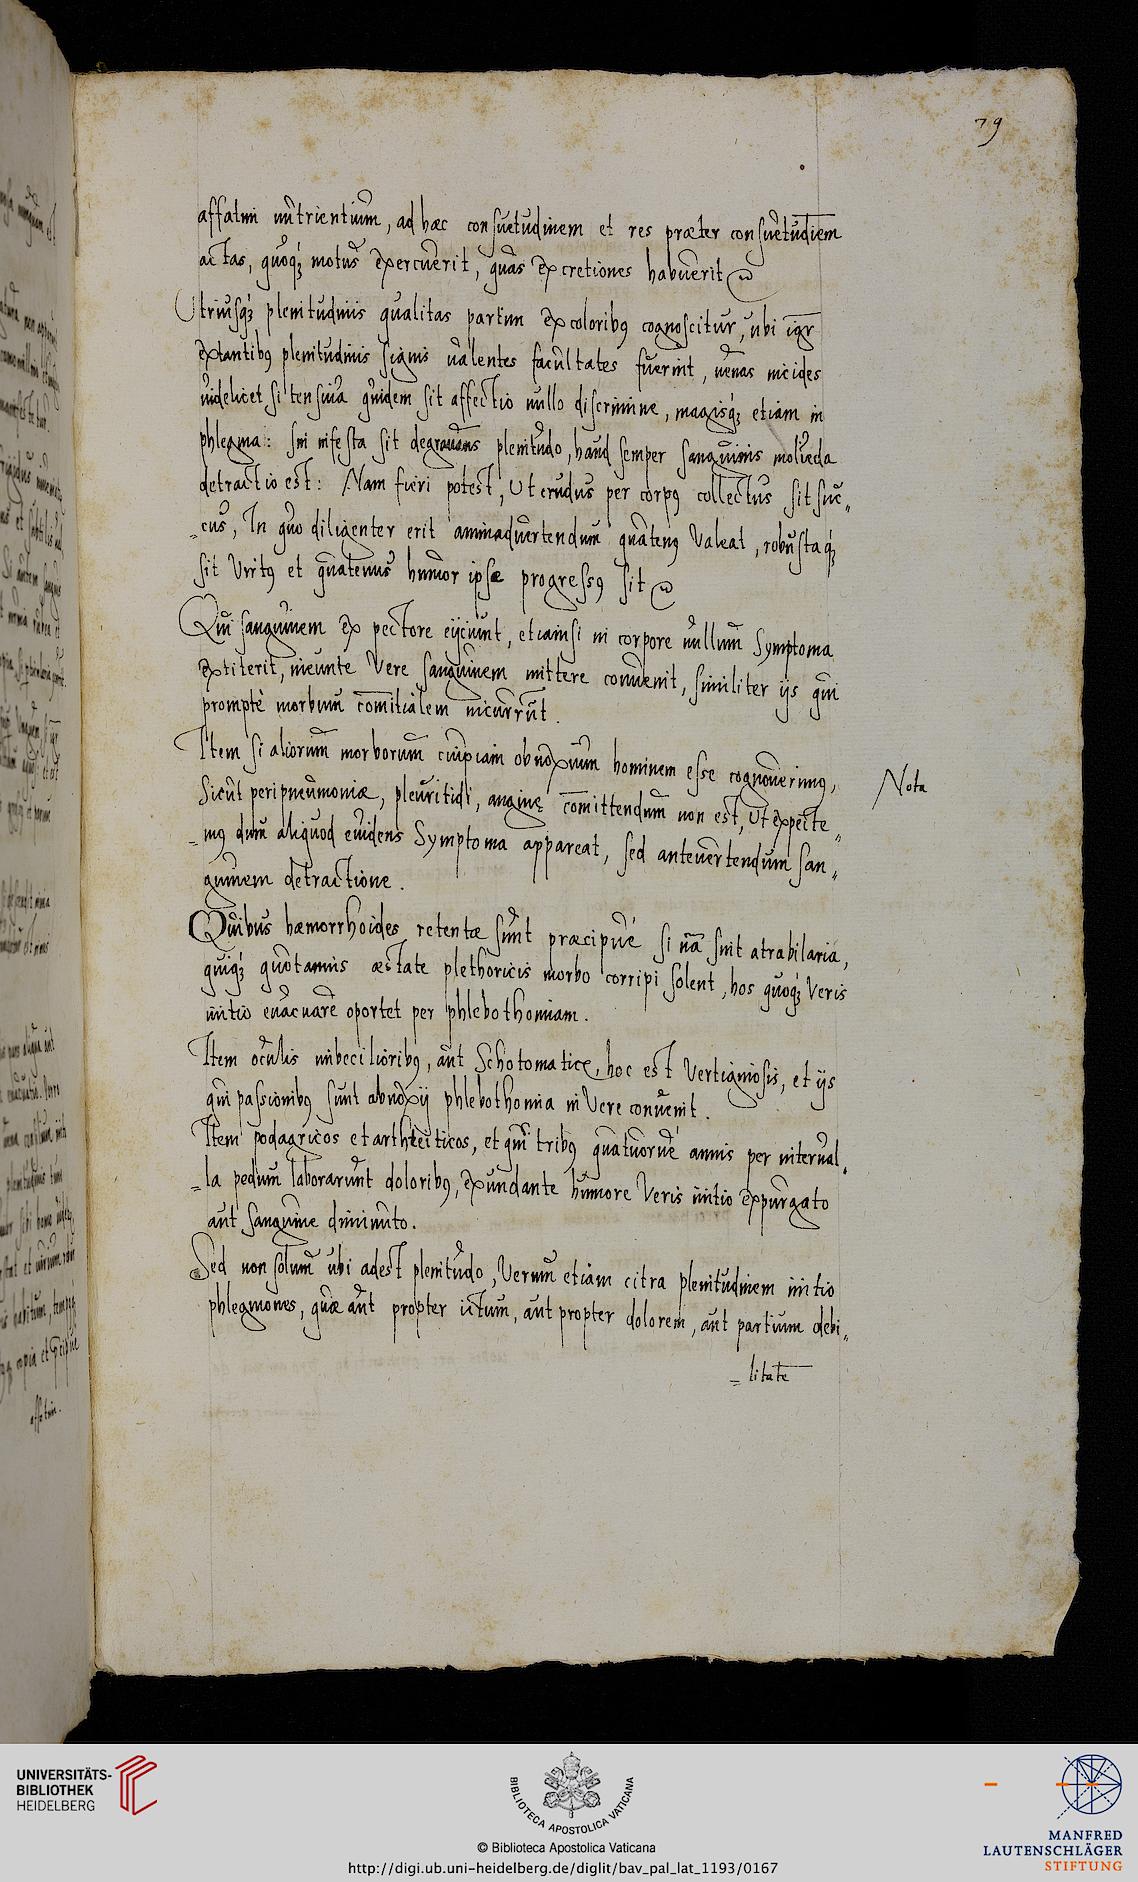 79
affatim nutrientium, ad hæc consuetudinem et res præter consuetudiem
actas, quoqꝫ motus exercuerit, quas excretiones habuerit
Utriusqꝫ plenitudinis qualitas partim ex coloribꝰ cognoscitur, ubi igr̄
extantibꝰ plenitudinis signis ualentes facultates fuerint, uenas incides
uidelicet si tensiua quidem sit affectio nullo discrimine, magisqꝫ etiam in
phlegma: sin infesta sit degrauans plenitudo, haud semper sanguinis molieda
detractio est: Nam fieri potest, Ut crudus per corpꝰ collectus sit suc„
„cus, In quo diligenter erit animaduertendum quatenꝰ Valeat, robustaqꝫ
sit Virtꝰ et quatenus humor ipse progressꝰ sit
Qui sanguinem ex pectore eijciunt, etiamsi in corpore nullum Symptoma
extiterit, ineunte Vere sanguinem mittere conuenit, similiter ijs qui
promptè morbum comitialem incurrūt.
Item si aliorum morborum cuipiam obnoxium hominem esse cognouerimꝰ,
Sicut peripneumoniæ, pleuritidi, anginę comittendum non est, Ut expecte„
„mꝰ dum aliquod euidens Symptoma appareat, sed anteuertendum san„
guinem detractione.
Nota
Quibus hæmorrhoides retentæ sunt præcipuè si nā sint atrabilaria,
quiqꝫ quotannis æstate plethoricis morbo corripi solent, hos quoqꝫ Veris
initio euacuare oportet per phlebothomiam.
Item oculis imbecilioribꝰ, aut Schotomaticę, hoc est Vertiginosis, et ijs
qui passionibꝰ sunt abnoxij phlebothomia in Vere conuenit.
Item podagricos et arthteiticos, et qui tribꝰ quatuorue annis per interual„
„la pedum laborarunt doloribꝰ, exundante humore Veris initio expurgato
aut sanguine diminuto.
Sed non solum ubi adest plenitudo, Verum etiam citra plenitudinem initio
phlegmones, quæ aut propter ictum, aut propter dolorem, aut partium debi„
„litate
affatim.
UNIVERSITÄTS-
BIBLIOTHEK
HEIDELBERG
BIBLIOTECA APOSTOLICA VATICANA
© Biblioteca Apostolica Vaticana
http://digi.ub.uni-heidelberg.de/diglit/bav_pal_lat_1193/0167
MANFRED
LAUTENSCHLÄGER
STIFTUNG